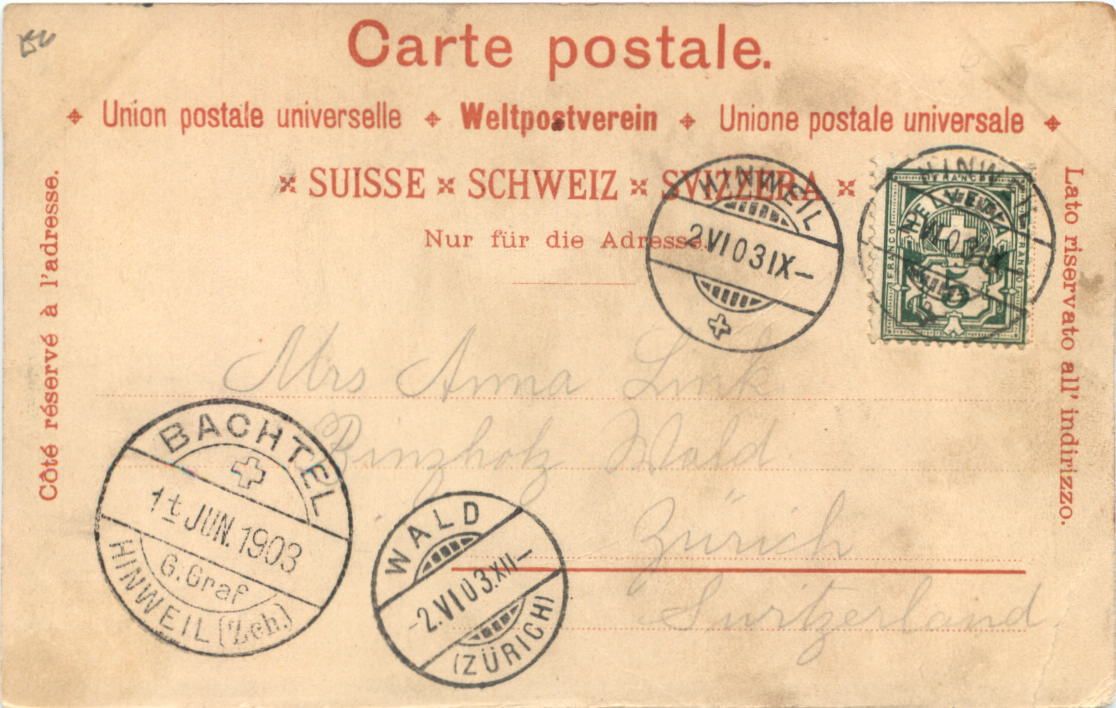 Carte postale.
Union postale universelle Weltpostverein Unione postale universale
SUISSE SCHWEIZ SVIZZERA
Nur für die Adresse.
Côté réservé à l'adresse.
Lato riservato all' indirizzo.
HINWEIL
2.VI.03.IX–
HINWEIL
FRANCO
HELVETIA
FRANCO
FRANCO
5
Mrs Anna Link
Binzholz Wald
Zürich
Switzerland
BACHTEL
1t JUN. 1903
G. Graf
HINWEIL (Zch.)
WALD
-2.VI.03.XII–
(ZÜRICH)